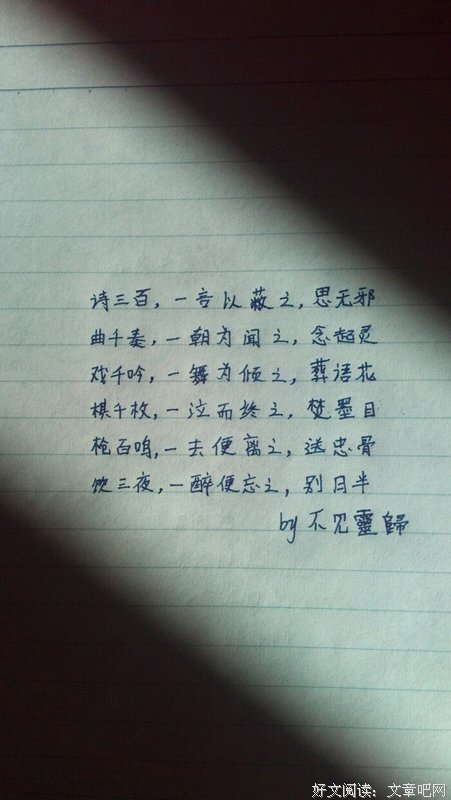 诗三百，一言以蔽之，思无邪
曲千奏，一朝为闻之，念起灵
戏千吟，一舞为倾之，葬语花
棋千枚，一泣而终之，焚墨目
枪百鸣，一去便离之，送忠骨
饮三夜，一醉便忘之，别日半
by 不见靈歸
好文阅读：文章吧网